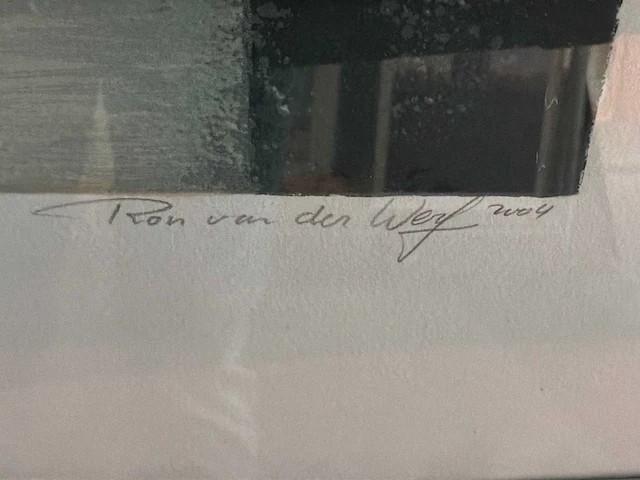 Ron van der Werf 2004